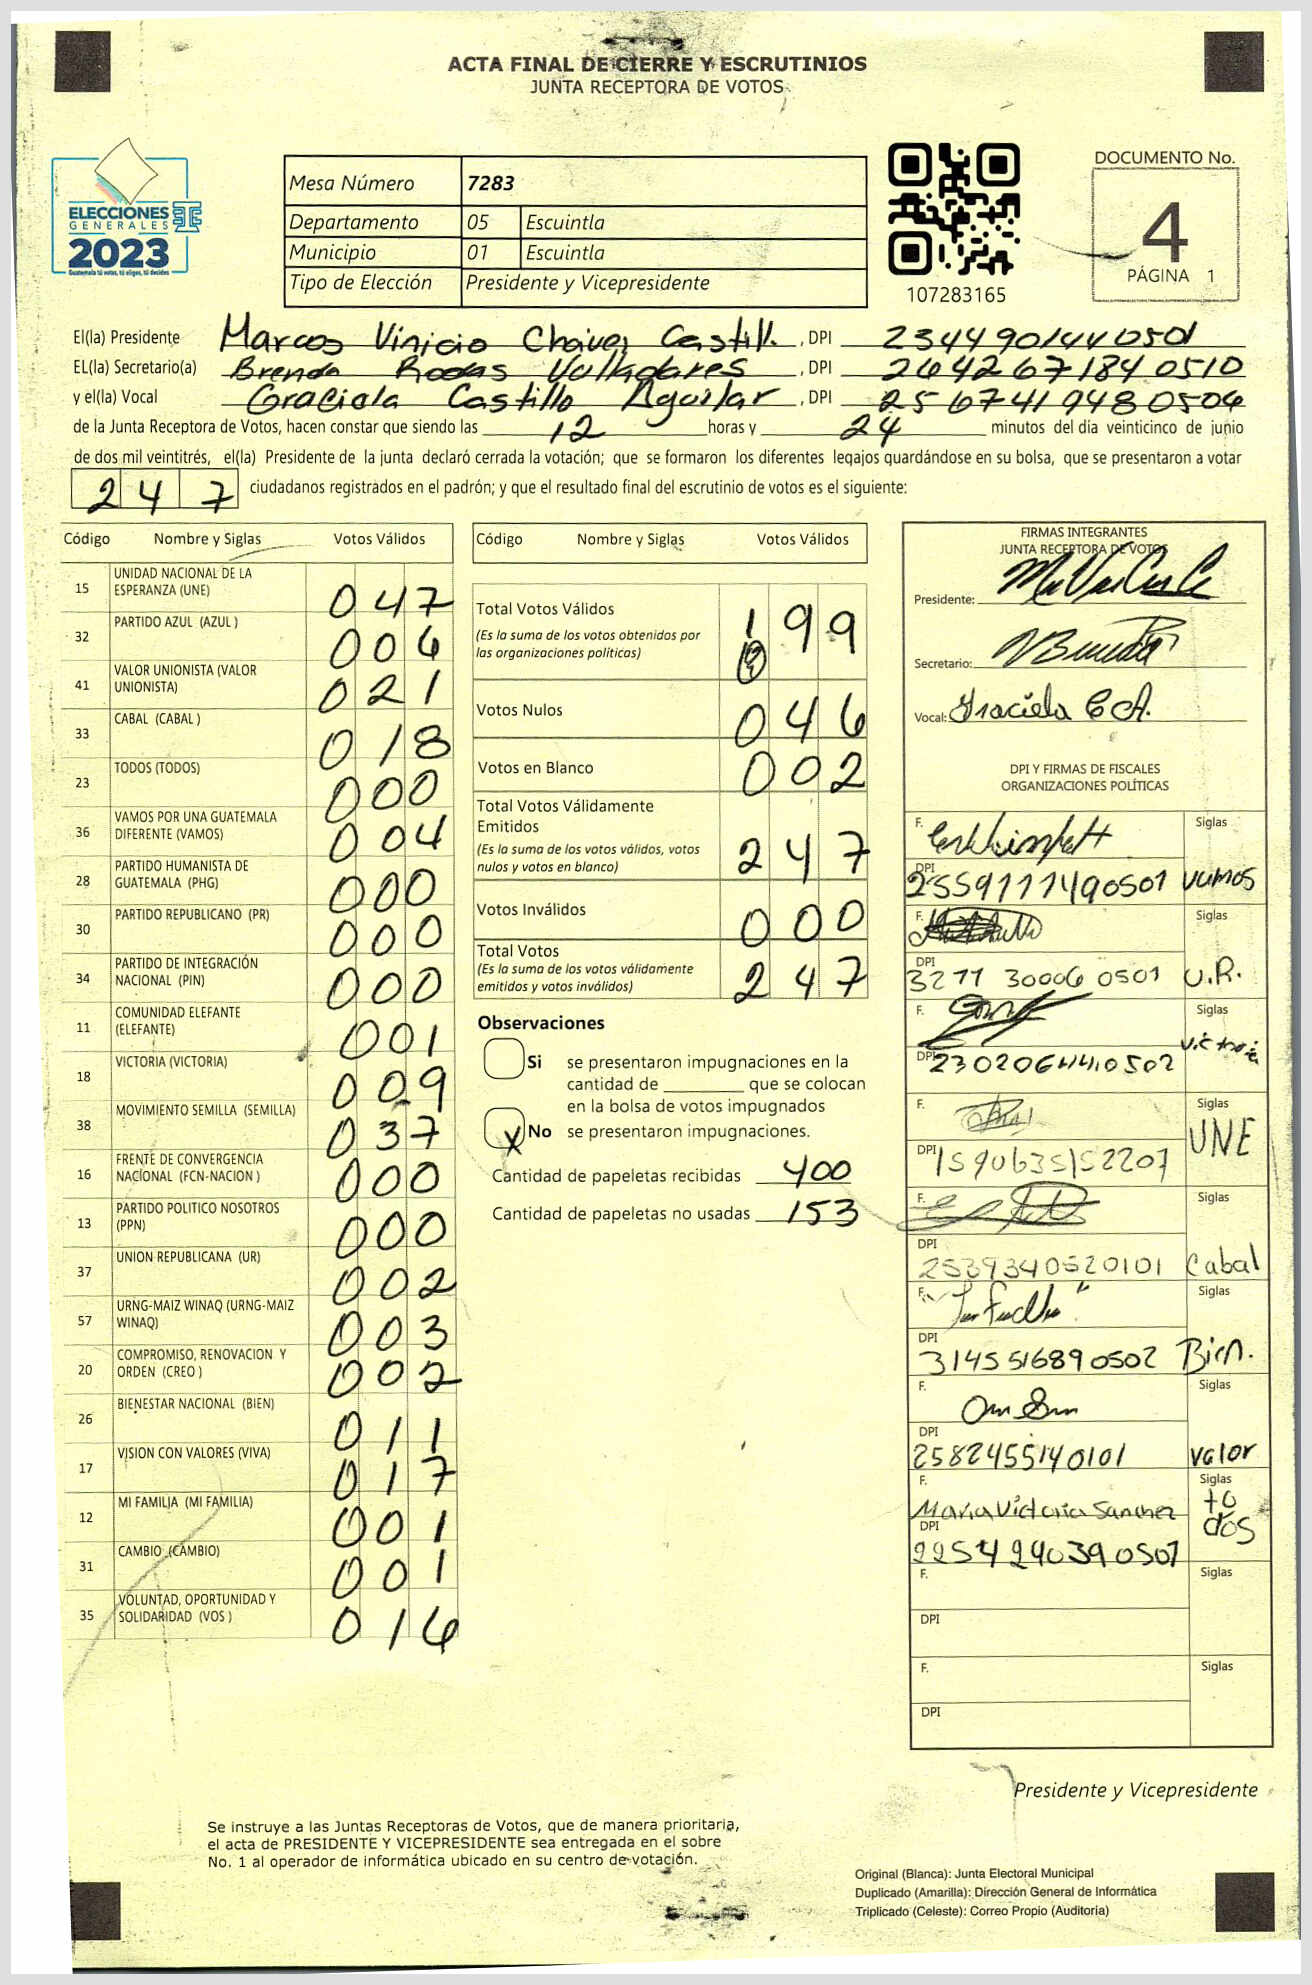 ACTA FINAL DE CIERRE Y ESCRUTINIOS
JUNTA RECEPTORA DE VOTOS
ELECCIONES
GENERALES
2023
Guatemala tú votas, tú eliges, tú decides
Mesa Número 7283
Departamento 05 Escuintla
Municipio 01 Escuintla
Tipo de Elección Presidente y Vicepresidente
107283165
DOCUMENTO No.
4
PÁGINA 1
El(la) Presidente Marcos Vinicio Chavez Castill. , DPI 2344901440501
EL(la) Secretario(a) Brenda Rodas Valladares , DPI 2642671840510
y el(la) Vocal Graciela Castillo Aguilar , DPI 2567419480504
de la Junta Receptora de Votos, hacen constar que siendo las 12 horas y 24 minutos del día veinticinco de junio
de dos mil veintitrés, el(la) Presidente de la junta declaró cerrada la votación; que se formaron los diferentes legajos guardándose en su bolsa, que se presentaron a votar
247 ciudadanos registrados en el padrón; y que el resultado final del escrutinio de votos es el siguiente:
Código Nombre y Siglas Votos Válidos
15 UNIDAD NACIONAL DE LA ESPERANZA (UNE) 047
32 PARTIDO AZUL (AZUL ) 006
41 VALOR UNIONISTA (VALOR UNIONISTA) 021
33 CABAL (CABAL ) 018
23 TODOS (TODOS) 000
36 VAMOS POR UNA GUATEMALA DIFERENTE (VAMOS) 004
28 PARTIDO HUMANISTA DE GUATEMALA (PHG) 000
30 PARTIDO REPUBLICANO (PR) 000
34 PARTIDO DE INTEGRACIÓN NACIONAL (PIN) 000
11 COMUNIDAD ELEFANTE (ELEFANTE) 001
18 VICTORIA (VICTORIA) 009
38 MOVIMIENTO SEMILLA (SEMILLA) 037
16 FRENTE DE CONVERGENCIA NACIONAL (FCN-NACION ) 000
13 PARTIDO POLITICO NOSOTROS (PPN) 000
37 UNION REPUBLICANA (UR) 002
57 URNG-MAIZ WINAQ (URNG-MAIZ WINAQ) 003
20 COMPROMISO, RENOVACION Y ORDEN (CREO ) 002
26 BIENESTAR NACIONAL (BIEN) 011
17 VISION CON VALORES (VIVA) 017
12 MI FAMILIA (MI FAMILIA) 001
31 CAMBIO (CAMBIO) 001
35 VOLUNTAD, OPORTUNIDAD Y SOLIDARIDAD (VOS ) 016
Código Nombre y Siglas Votos Válidos
Total Votos Válidos 199
(Es la suma de los votos obtenidos por
las organizaciones políticas)
Votos Nulos 046
Votos en Blanco 002
Total Votos Válidamente
Emitidos
(Es la suma de los votos válidos, votos
nulos y votos en blanco) 247
Votos Inválidos 000
Total Votos
(Es la suma de los votos válidamente
emitidos y votos inválidos) 247
Observaciones
Si se presentaron impugnaciones en la
cantidad de ________ que se colocan
en la bolsa de votos impugnados
X No se presentaron impugnaciones.
Cantidad de papeletas recibidas 400
Cantidad de papeletas no usadas 153
FIRMAS INTEGRANTES
JUNTA RECEPTORA DE VOTOS
Presidente:
Secretario:
Vocal: Graciela C A.
DPI Y FIRMAS DE FISCALES
ORGANIZACIONES POLÍTICAS
F. Siglas
DPI 2559777490501 vamos
F. Siglas
DPI 3277 30006 0501 U.R.
F. Siglas
DPI 2302064440502 victoria
F. Siglas
DPI 1590635152207 UNE
F. Siglas
DPI 2539340520101 Cabal
F. Siglas
DPI 3145516890502 Bien.
F. Siglas
DPI 2582455140101 valor
F. Maria Victoria Sanchez Siglas
DPI 2254240390507 todos
F. Siglas
DPI
F. Siglas
DPI
Presidente y Vicepresidente
Se instruye a las Juntas Receptoras de Votos, que de manera prioritaria,
el acta de PRESIDENTE Y VICEPRESIDENTE sea entregada en el sobre
No. 1 al operador de informática ubicado en su centro de votación.
Original (Blanca): Junta Electoral Municipal
Duplicado (Amarilla): Dirección General de Informática
Triplicado (Celeste): Correo Propio (Auditoría)